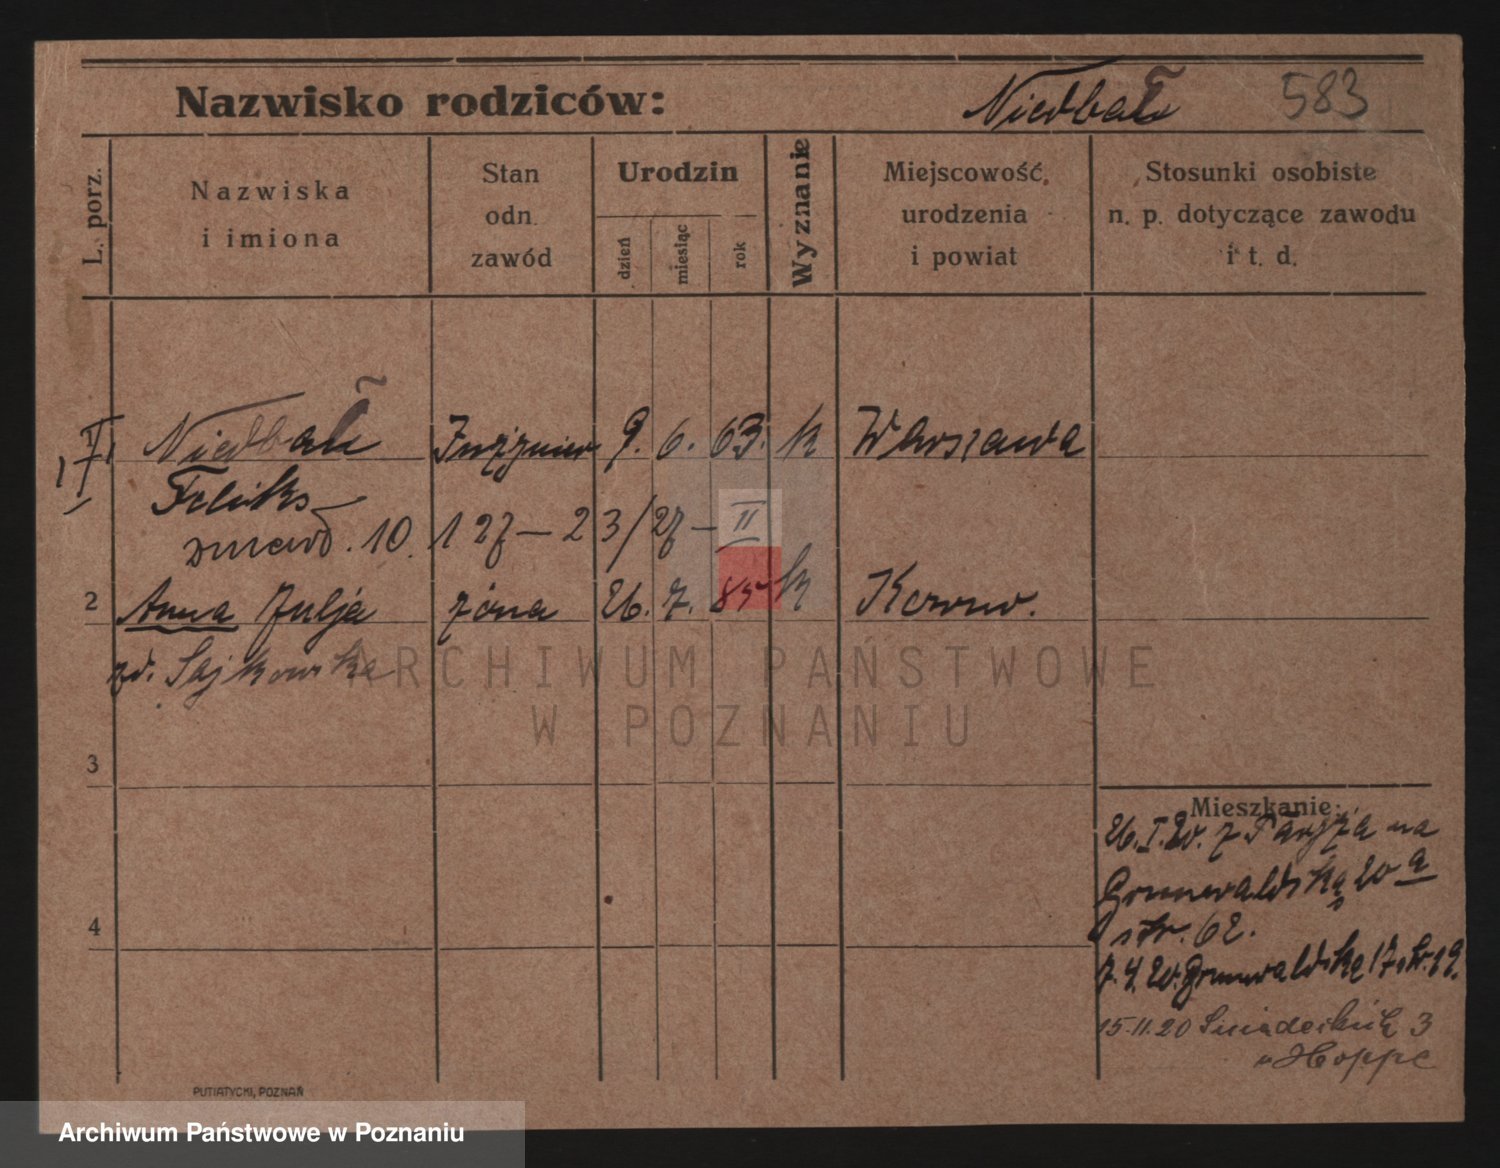 Nazwisko rodziców: Niedbał 583
L. porz.
Nazwiska
i imiona
Stan
odn.
zawód
Urodzin
dzień
miesiąc
rok
Wyznanie
Miejscowość
urodzenia
i powiat
Stosunki osobiste
n. p. dotyczące zawodu
i t. d.
Niedbał Inżynier 9. 6. 63. k Warszawa
Feliks
zmarł. 10. 1 27 — 23/27 — II
2 Anna Julja żona 26. 7. 85 k Kowno.
zd. Sajkowska
ARCHIWUM PAŃSTWOWE
W POZNANIU
3
Mieszkanie:
26. I. 20. z Paryża na
Grunwaldską 20 a
str. 62.
4
7. 4. 20. Grunwaldską 17 str. 19.
15.11.20 Śniadeckich 3
u Hoppe
PUTIATYCKI, POZNAŃ
Archiwum Państwowe w Poznaniu